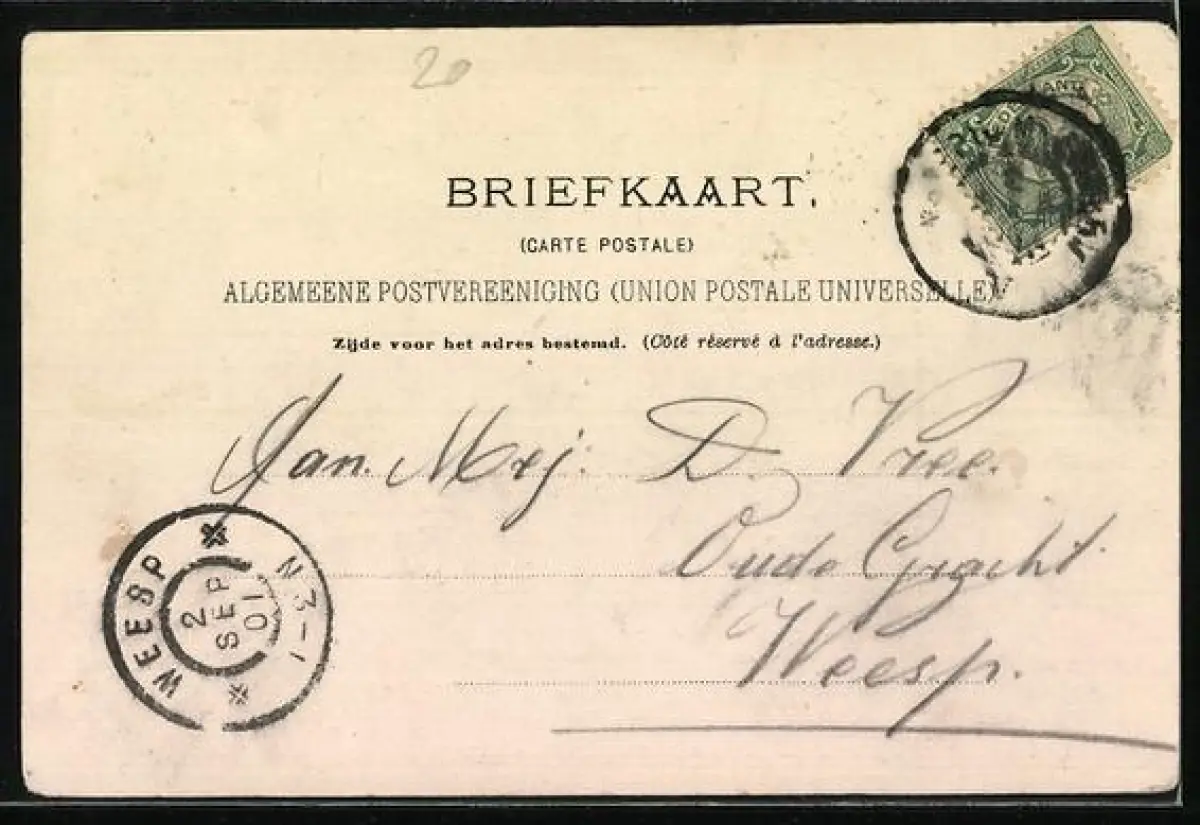 20
BRIEFKAART.
(CARTE POSTALE)
ALGEMEENE POSTVEREENIGING (UNION POSTALE UNIVERSELLE)
Zijde voor het adres bestemd. (Côté réservé à l'adresse.)
Jan. Mej. D. Vree.
Oude Gracht.
Weesp.
WEESP
2
SEP
01
N 3-1